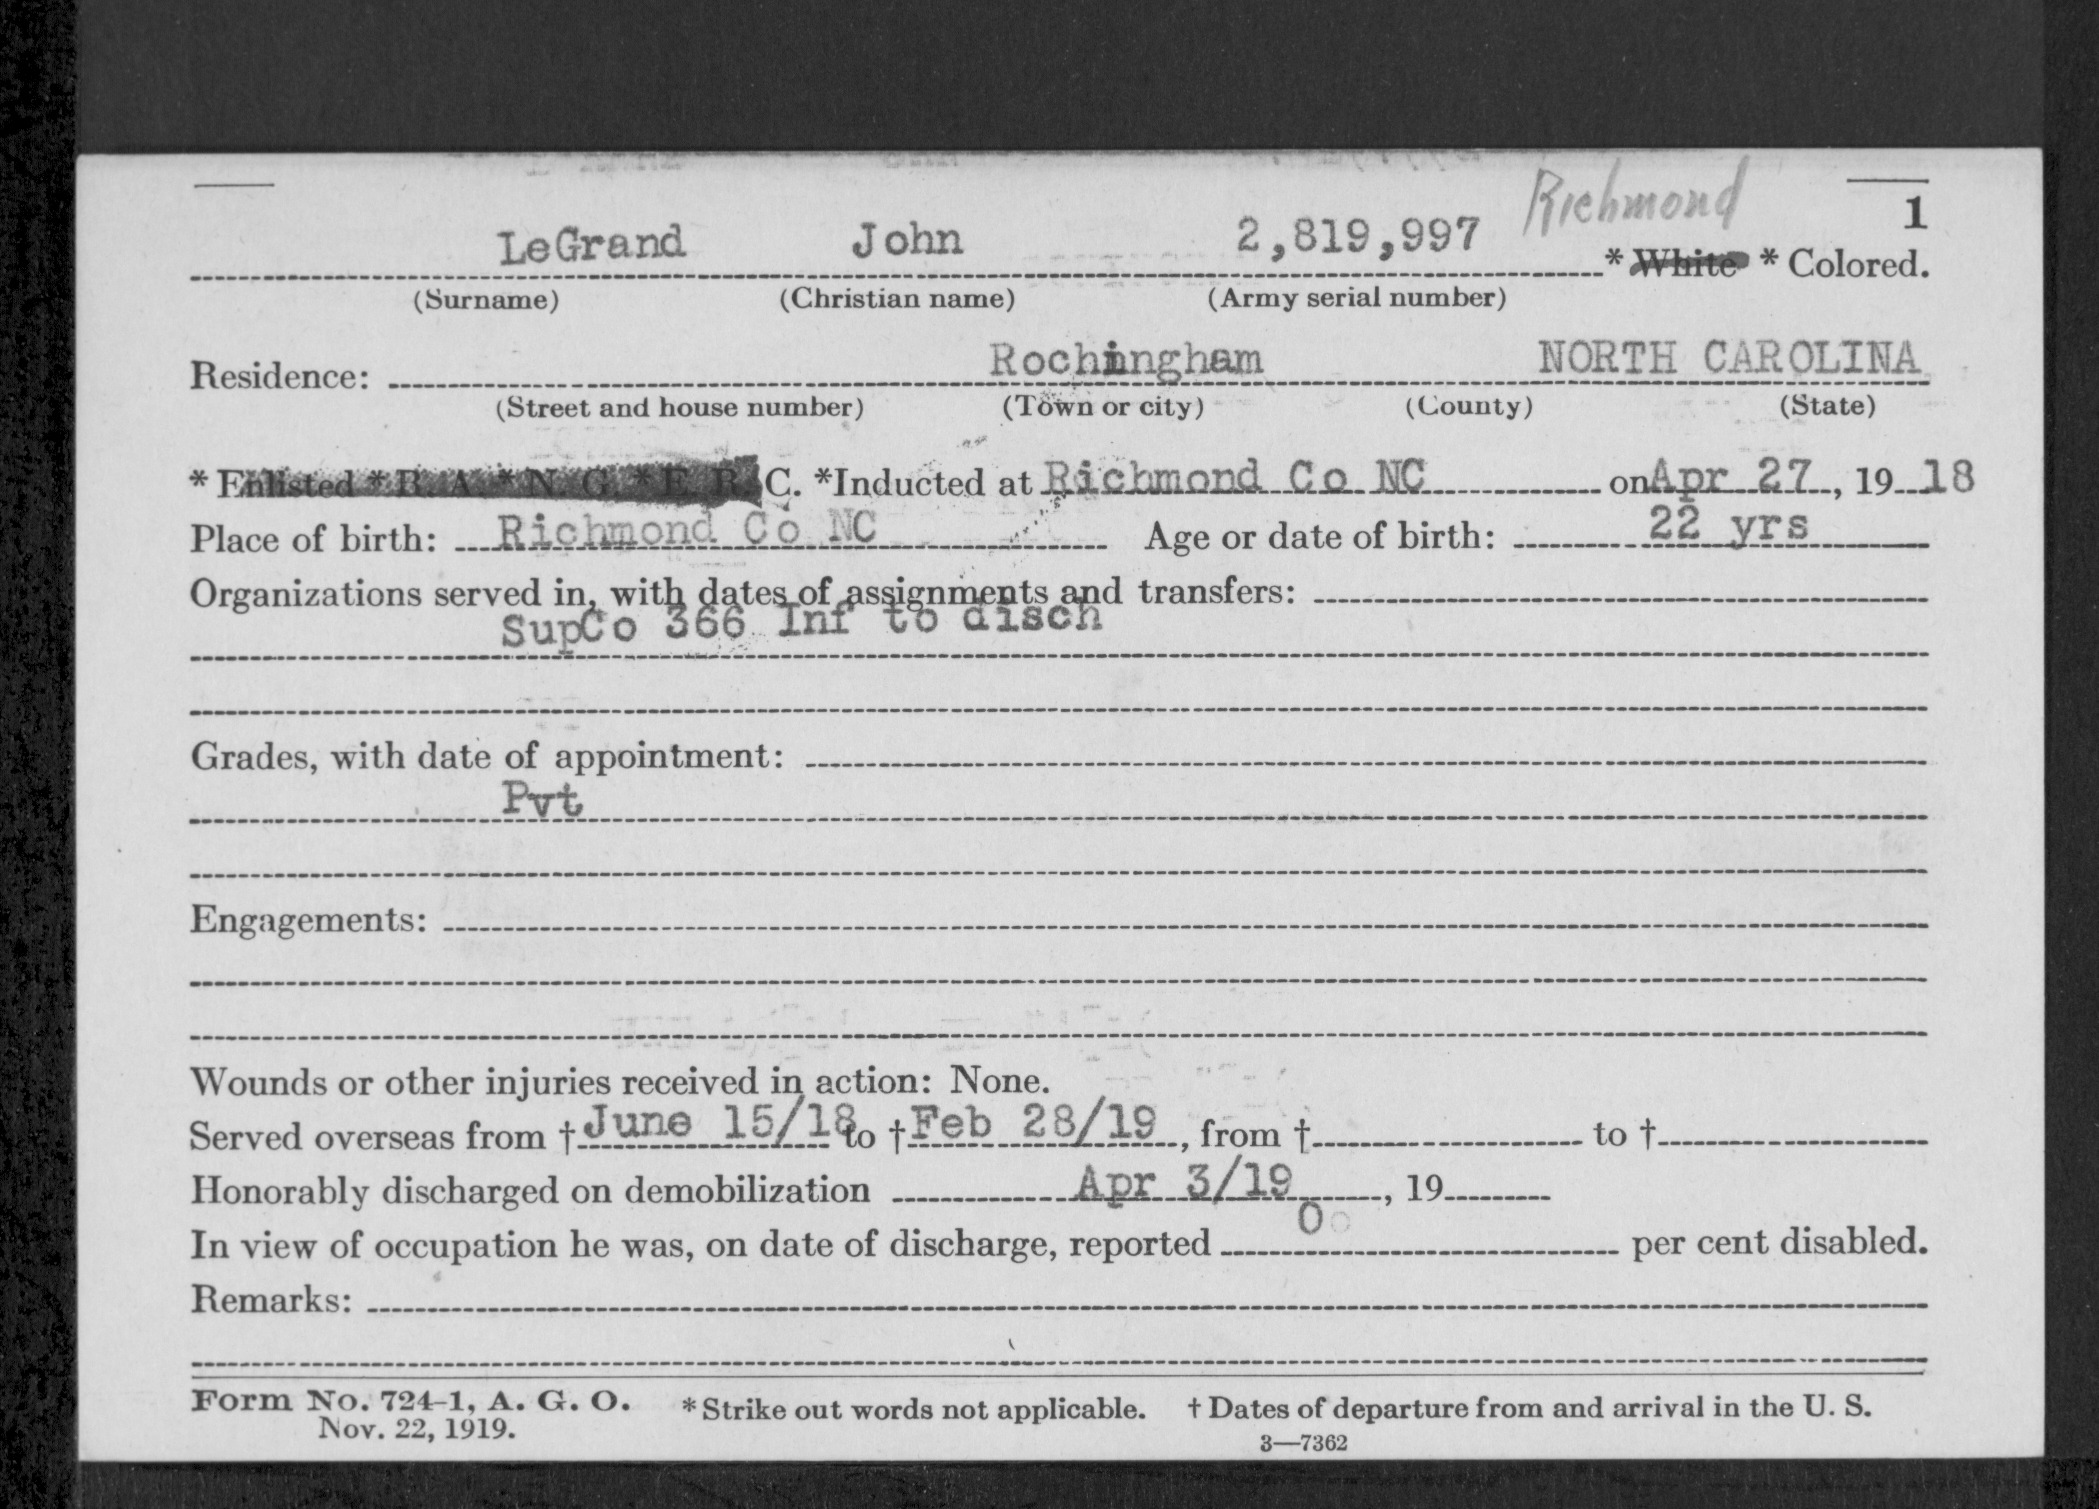 Richmond
1
LeGrand John 2,819,997 * White * Colored.
(Surname) (Christian name) (Army serial number)
Residence: Rochingham NORTH CAROLINA
(Street and house number) (Town or city) (County) (State)
* Enlisted * R. A. * N. G. * E. R. C. *Inducted at Richmond Co NC on Apr 27, 19 18
Place of birth: Richmond Co NC Age or date of birth: 22 yrs
Organizations served in, with dates of assignments and transfers:
SupCo 366 Inf to disch
Grades, with date of appointment:
Pvt
Engagements:
Wounds or other injuries received in action: None.
Served overseas from † June 15/18 to † Feb 28/19, from † to †
Honorably discharged on demobilization Apr 3/19, 19
In view of occupation he was, on date of discharge, reported 0 per cent disabled.
Remarks:
Form No. 724-1, A. G. O. * Strike out words not applicable. † Dates of departure from and arrival in the U. S.
Nov. 22, 1919.
3—7362